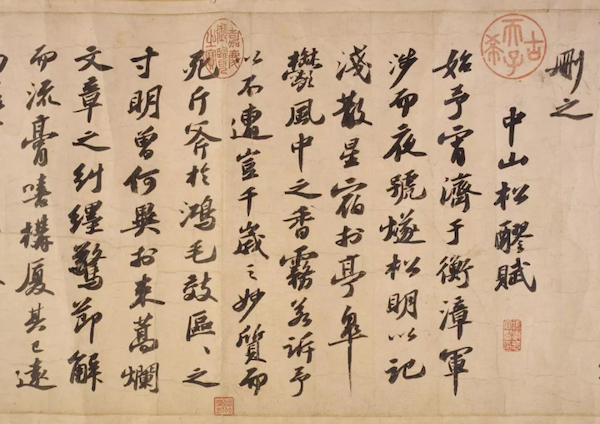 刪之
中山松醪賦
始予宵濟于衡漳軍
涉而夜號燧松明以記
淺散星宿於亭皋
鬱風中之香霧若訴予
以不遭豈千歲之妙質而
死斤斧於鴻毛效區々之
寸明曾何異於束蒿爛
文章之糾纏驚節解
而流膏嘻構廈其已遠
古希天子
嘉慶御覽之寶